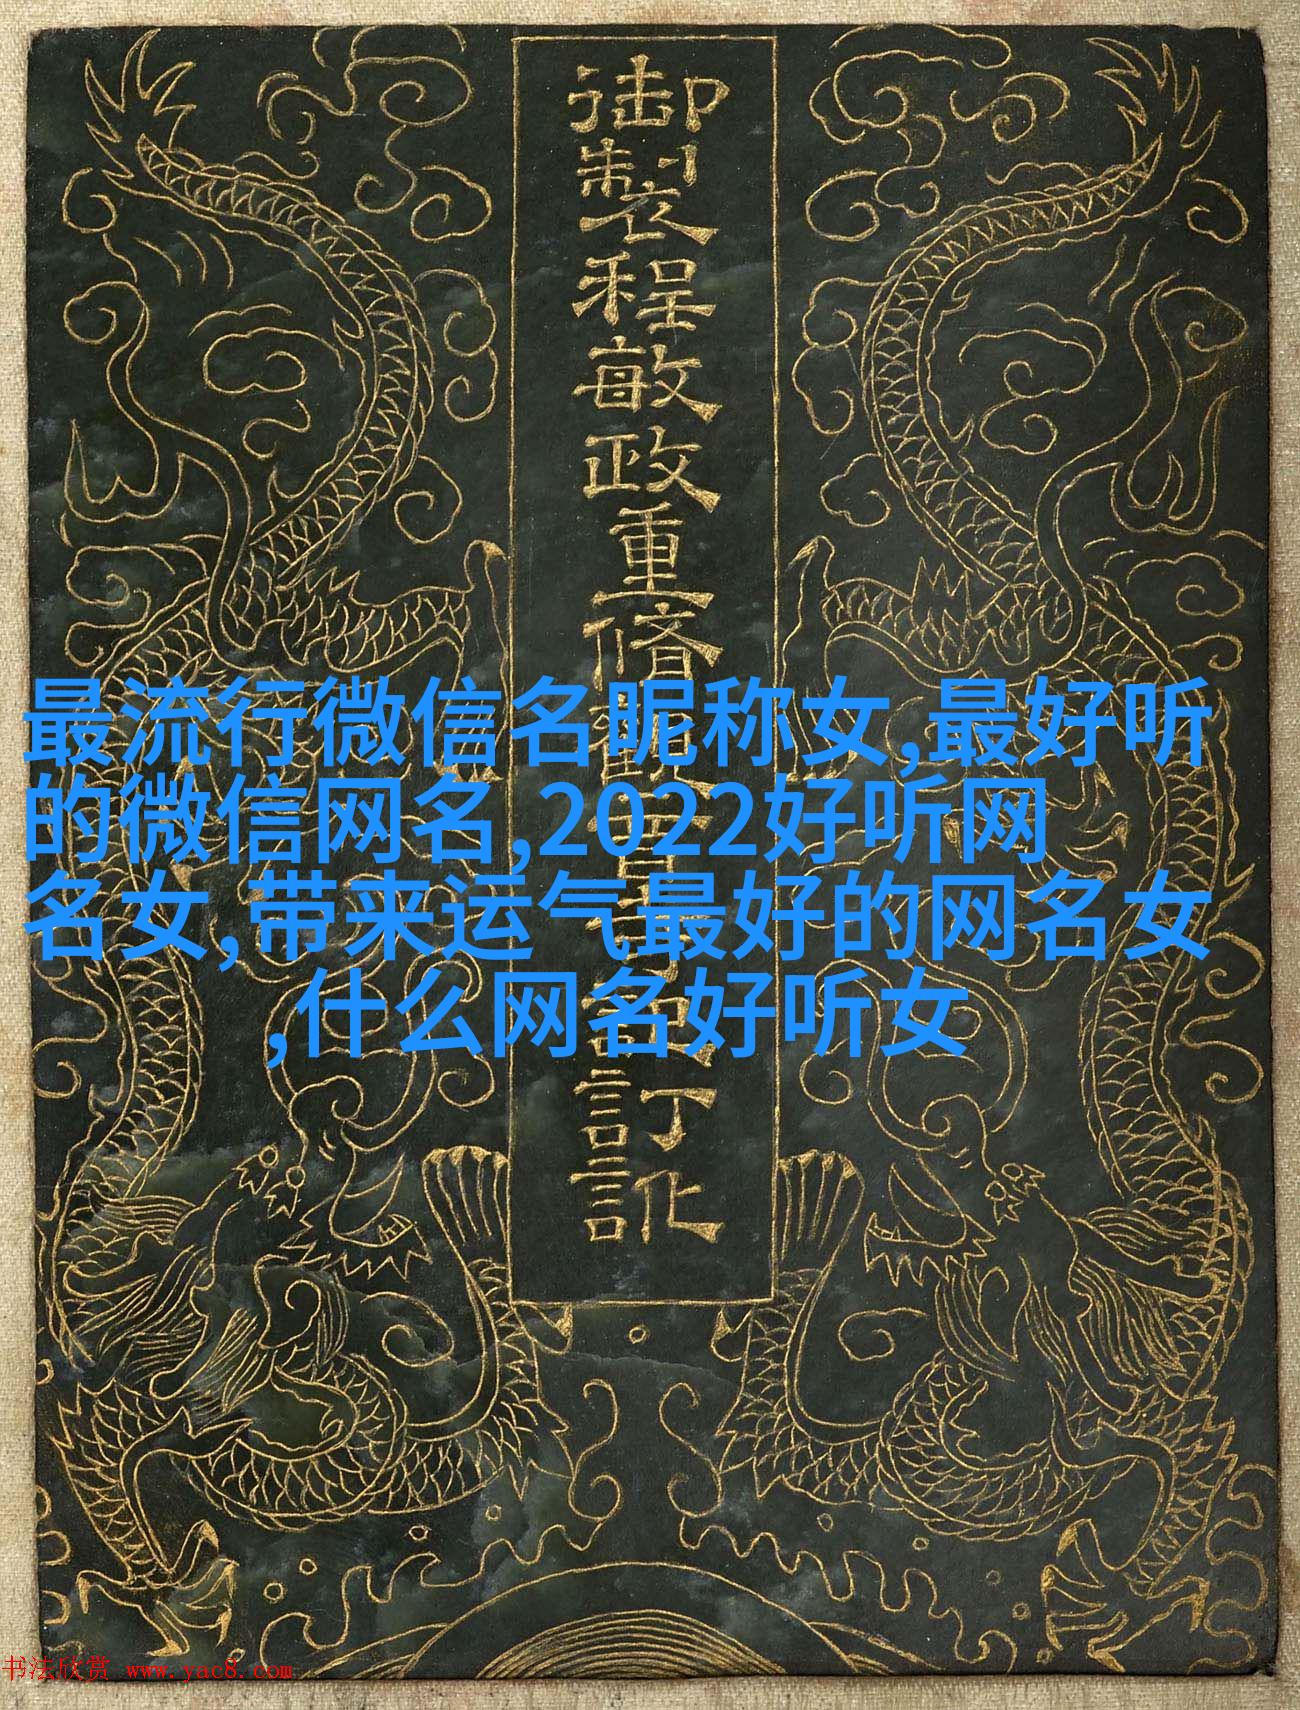 御製程敏政重脩訂訛
最流行微信名昵称女,最好听
的微信网名,2022好听网
名女,带来运气最好的网名女
,什么网名好听女
书法欣赏 www.yac8.com